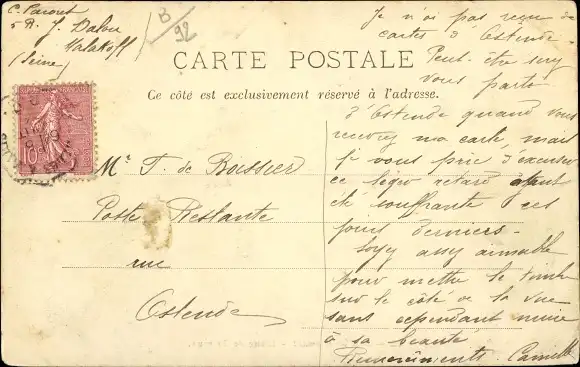 C. Parout
5 R. J. Dalou
Malakoff
(Seine)
B/92
Je n'ai pas reçu de
cartes d'Ostende.
Peut-être serez
vous partie
CARTE POSTALE
Ce côté est exclusivement réservé à l'adresse.
d'Ostende quand vous
recevrez ma carte, mais
je vous prie d'excuser
ce léger retard ayant
été souffrante ces
jours derniers.
Soyez assez aimable
pour mettre le timbre
sur le côté de la vue
sans cependant nuire
à sa beauté
Remerciements Camille
10
Mr. F. de Bassier
Poste Restante
rue
Ostende